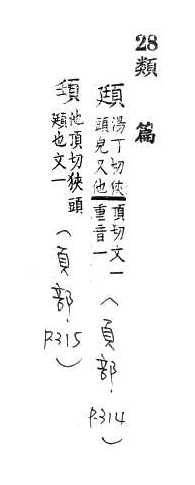 28類篇
頲
湯丁切狹頂切文一
頭皃又他重音一
(頁部.P.314)
他頂切狹頭
頲也文一
(頁部.P.315)